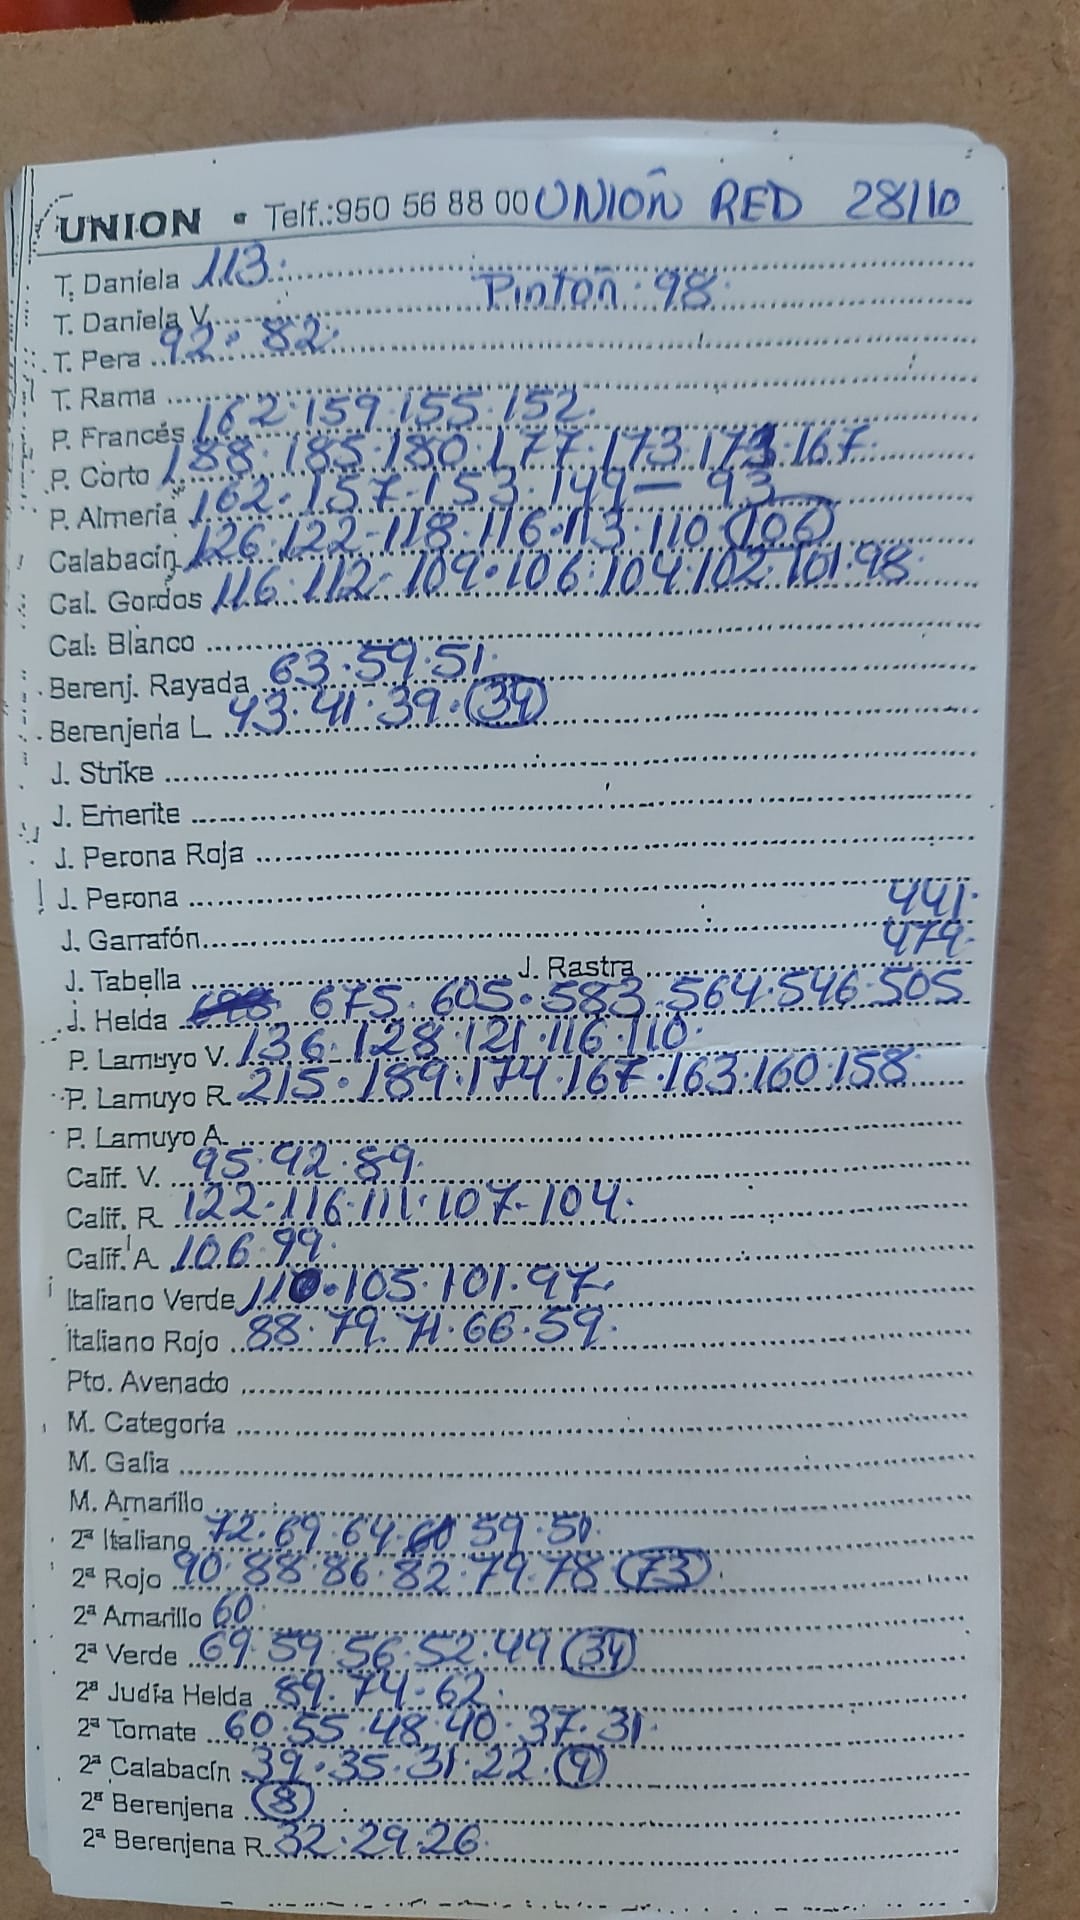 UNION • Telf.:950 56 88 00 UNION RED 28/10
T. Daniela 113.
Pinton. 98.
T. Daniela V.
T. Pera 92. 82.
T. Rama
P. Francés 162. 159. 155. 152.
P. Corto 188. 185. 180. 177. 173. 171. 167.
P. Almería 162. 157. 153. 149 — 93
Calabacín 126. 122 - 118. 116. 113. 110. 106
Cal. Gordos 116. 112 - 109. 106. 104. 102. 101. 98.
Cal. Blanco
Berenj. Rayada 63. 59. 51.
Berenjena L. 43. 41. 39. 34
J. Strike
J. Emerite
J. Perona Roja
J. Perona
J. Garrafón 441.
479.
J. Tabella J. Rastra
J. Helda 675. 605. 583. 564. 546. 505
P. Lamuyo V. 136. 128. 121. 116. 110.
P. Lamuyo R. 215. 189. 174. 167. 163. 160. 158
P. Lamuyo A.
Calif. V. 95. 92. 89.
Calif. R. 122. 116. 111. 107. 104.
Calif. A. 106. 99.
Italiano Verde 110. 105. 101. 97.
Italiano Rojo 88. 79. 71. 66. 59.
Pto. Avenado
M. Categoría
M. Galia
M. Amarillo
2ª Italiano 72. 69. 64. 59. 51.
2ª Rojo 90. 88. 86. 82. 79. 78 73
2ª Amarillo 60.
2ª Verde 69. 59. 56. 52. 49 34
2ª Judía Helda 89. 74. 62.
2ª Tomate 60. 55. 48. 40. 37. 31.
2ª Calabacín 39. 35. 31. 22. 9
2ª Berenjena 8
2ª Berenjena R. 32. 29. 26.